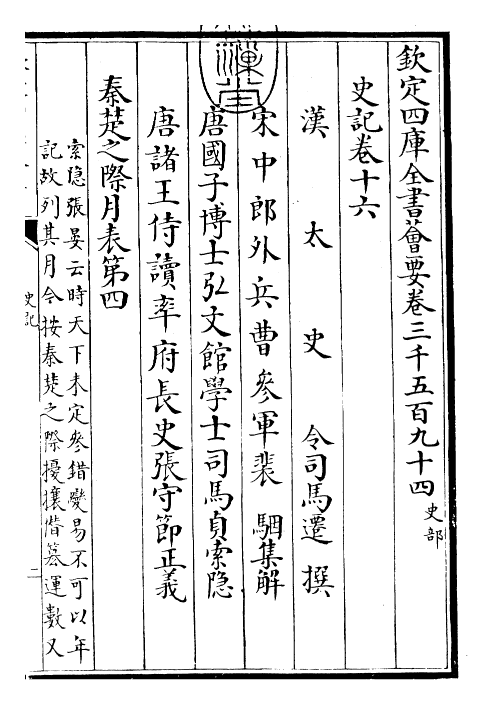 欽定四庫全書薈要卷三千五百九十四 史部
史記卷十六
漢太史令司馬遷撰
宋中郎外兵曹參軍裴駰集解
唐國子博士弘文館學士司馬貞索隐
唐諸王侍讀率府長史張守節正義
秦楚之際月表第四
索隐張晏云時天下未定參錯變易不可以年
記故列其月今按秦楚之際擾攘僣篡運數又
史記